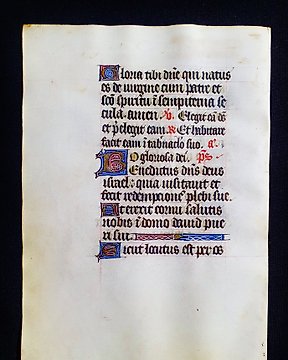 Gloria tibi dñe qui natus
es de uirgine cum patre et
sc̃o spiritu ĩ sempiterna se
cula. amen. v. Elegit eã dś
et p̃elegit eam. R. Et habitare
facit eam ĩ tab̃naclo suo. a.
O gloriosa dei. ps.
Benedictus dñs deus
israel: quia uisitauit et
fecit redempcionẽ plebi sue.
Et erexit cornu salutis
nobis: ĩ domo dauid pue
ri sui.
Sicut locutus est per os